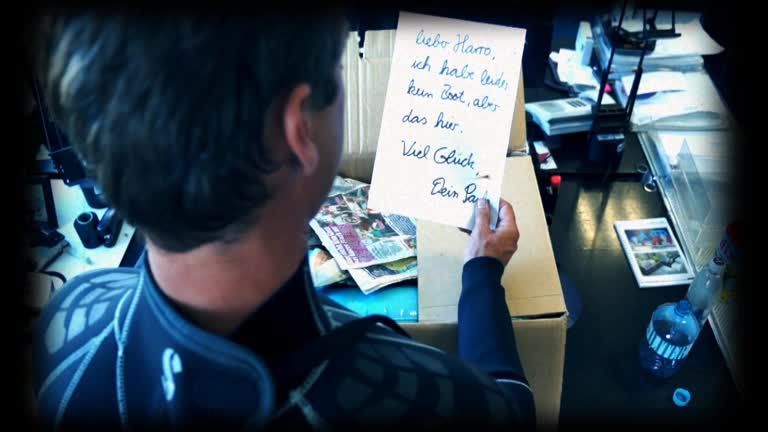 lieber Harro,
ich habe leider
kein Boot, aber
das hier.
Viel Glück,
Dein